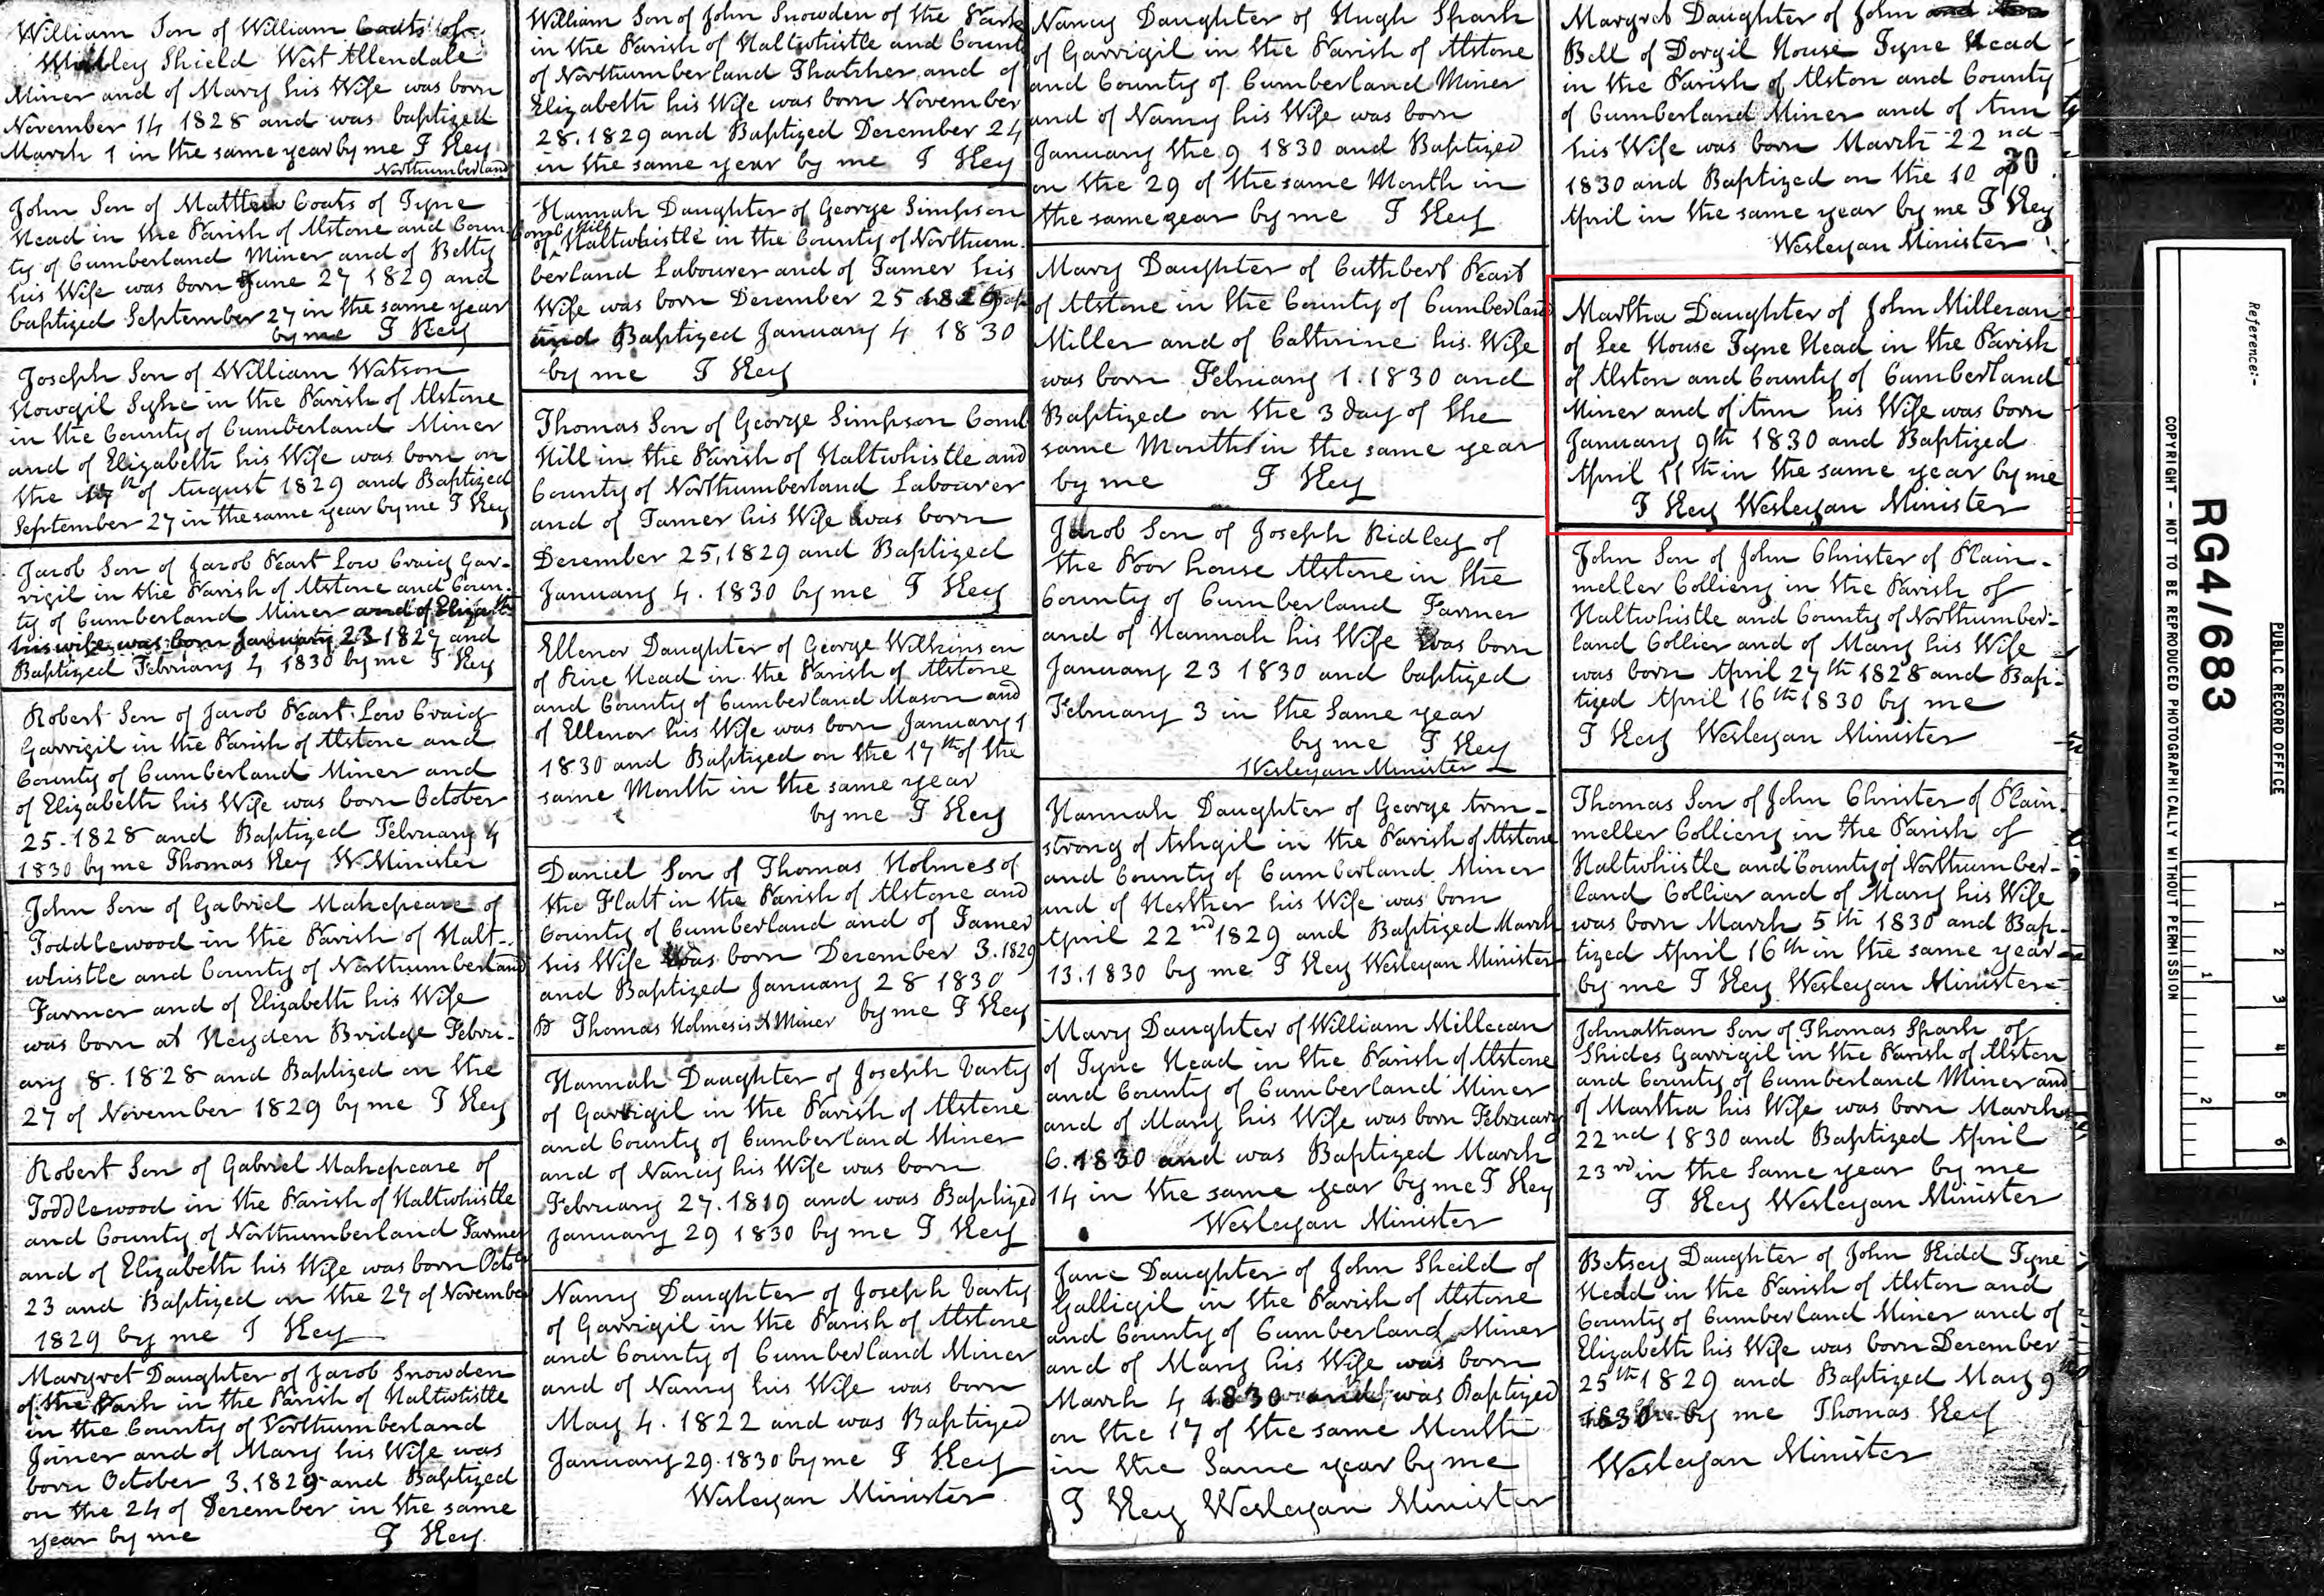 William Son of William Coats of
Shield West Allendale
Miner and of Mary his Wife was born
November 14 1828 and was baptized
March 1 in the same year by me T Key
Northumberland
John Son of Matthew Coats of Tyne
Head in the Parish of Alstone and Coun-
ty of Cumberland Miner and of Betty
his Wife was born June 27 1829 and
baptized September 27 in the same year
by me T Key
Joseph Son of William Watson
Howgil Syke in the Parish of Alstone
in the County of Cumberland Miner
and of Elizabeth his Wife was born on
the 17th of August 1829 and Baptized
September 27 in the same year by me T Key
Jacob Son of Jacob Peart Low Craig Gar-
rigil in the Parish of Alstone and Coun-
ty of Cumberland Miner and of Elizabeth
his wife was born January 23 1827 and
Baptized February 4 1830 by me T Key
Robert Son of Jacob Peart Low Craig
Garrigil in the Parish of Alstone and
County of Cumberland Miner and
of Elizabeth his Wife was born October
25-1828 and Baptized February 4
1830 by me Thomas Key W. Minister
John Son of Gabriel Makepeace of
Toddlewood in the Parish of Halt-
whistle and County of Northumberland
Farmer and of Elizabeth his Wife
was born at Heyden Bridge Febru-
ary 8. 1828 and Baptized on the
27 of November 1829 by me T Key
Robert Son of Gabriel Makepeace of
Toddlewood in the Parish of Haltwhistle
and County of Northumberland Farmer
and of Elizabeth his Wife was born Octo
23 and Baptized on the 27 of November
1829 by me T Key
Margret Daughter of Jacob Snowden
of the Park in the Parish of Haltwhistle
in the County of Northumberland
Joiner and of Mary his Wife was
born October 3. 1829 and Baptized
on the 24 of December in the same
year by me T Key.
William Son of John Snowden of the Park
in the Parish of Haltwhistle and County
of Northumberland Thatcher and of
Elizabeth his Wife was born November
28. 1829 and Baptized December 24
in the same year by me T Key
Hannah Daughter of George Simpson
Comb Hill
of Haltwhistle in the County of Northum-
berland Labourer and of Tamer his
Wife was born December 25 1829
and Baptized January 4 1830
by me T Key
Thomas Son of George Simpson Comb
Hill in the Parish of Haltwhistle and
County of Northumberland Labourer
and of Tamer his Wife was born
December 25, 1829 and Baptized
January 4. 1830 by me T Key
Ellenor Daughter of George Wilkinson
of Rire Head in the Parish of Alstone
and County of Cumberland Mason and
of Ellenor his Wife was born January 1
1830 and Baptized on the 17th of the
same Month in the same year
by me T Key
Daniel Son of Thomas Holmes of
the Flatt in the Parish of Alstone and
County of Cumberland and of Tamer
his Wife was born December 3. 1829
and Baptized January 28 1830
Thomas Holmes is A Miner by me T Key
Hannah Daughter of Joseph Varty
of Garrigil in the Parish of Alstone
and County of Cumberland Miner
and of Nancy his Wife was born
February 27. 1819 and was Baptized
January 29 1830 by me T Key
Nancy Daughter of Joseph Varty
of Garrigil in the Parish of Alstone
and County of Cumberland Miner
and of Nancy his Wife was born
May 4. 1822 and was Baptized
January 29. 1830 by me T Key
Wesleyan Minister
Nancy Daughter of Hugh Spark
of Garrigil in the Parish of Alstone
and County of Cumberland Miner
and of Nancy his Wife was born
January the 9 1830 and Baptized
on the 29 of the same Month in
the same year by me T Key
Mary Daughter of Cuthbert Peart
of Alstone in the County of Cumberland
Miller and of Cathrine his Wife
was born February 1. 1830 and
Baptized on the 3 day of the
same Month in the same year
by me T Key
Jacob Son of Joseph Ridley of
the Poor house Alstone in the
County of Cumberland Farmer
and of Hannah his Wife was born
January 23 1830 and baptized
February 3 in the Same year
by me T Key
Wesleyan Minister
Hannah Daughter of George Arm-
strong of Ashgil in the Parish of Alstone
and County of Cumberland Miner
and of Hesther his Wife was born
April 22nd 1829 and Baptized March
13. 1830 by me T Key Wesleyan Minister
Mary Daughter of William Millican
of Tyne Head in the Parish of Alstone
and County of Cumberland Miner
and of Mary his Wife was born February
6. 1830 and was Baptized March
14 in the same year by me T Key
Wesleyan Minister
Jane Daughter of John Sheild of
Galligil in the Parish of Alstone
and County of Cumberland Miner
and of Mary his Wife was born
March 4 1830 and was Baptized
on the 17 of the same Month
in the Same year by me
T Key Wesleyan Minister
Margret Daughter of John
Bell of Dorgil House Tyne Head
in the Parish of Alston and County
of Cumberland Miner and of Ann
his Wife was born March 22nd
30
1830 and Baptized on the 10 of
April in the same year by me T Key
Wesleyan Minister
Martha Daughter of John Milleran
of Lee House Tyne Head in the Parish
of Alston and County of Cumberland
Miner and of Ann his Wife was born
January 9th 1830 and Baptized
April 11th in the same year by me
T Key Wesleyan Minister
John Son of John Christer of Plain-
meller Colliery in the Parish of
Haltwhistle and County of Northumber-
land Collier and of Mary his Wife
was born April 27th 1828 and Bap-
tized April 16th 1830 by me
T Key Wesleyan Minister
Thomas Son of John Christer of Plain-
meller Colliery in the Parish of
Haltwhistle and County of Northumber-
land Collier and of Mary his Wife
was born March 5th 1830 and Bap-
tized April 16th in the same year
by me T Key Wesleyan Minister
Johnathan Son of Thomas Spark of
Shides Garrigil in the Parish of Alston
and County of Cumberland Miner and
of Martha his Wife was born March
22nd 1830 and Baptized April
23rd in the Same year by me
T Key Wesleyan Minister
Betsey Daughter of John Kidd Tyne
Hedd in the Parish of Alston and
County of Cumberland Miner and of
Elizabeth his Wife was born December
25th 1829 and Baptized May 9th
1830 by me Thomas Key
Wesleyan Minister
Reference:-
RG4/683
PUBLIC RECORD OFFICE
COPYRIGHT - NOT TO BE REPRODUCED PHOTOGRAPHICALLY WITHOUT PERMISSION
1
2
1
2
3
4
5
6